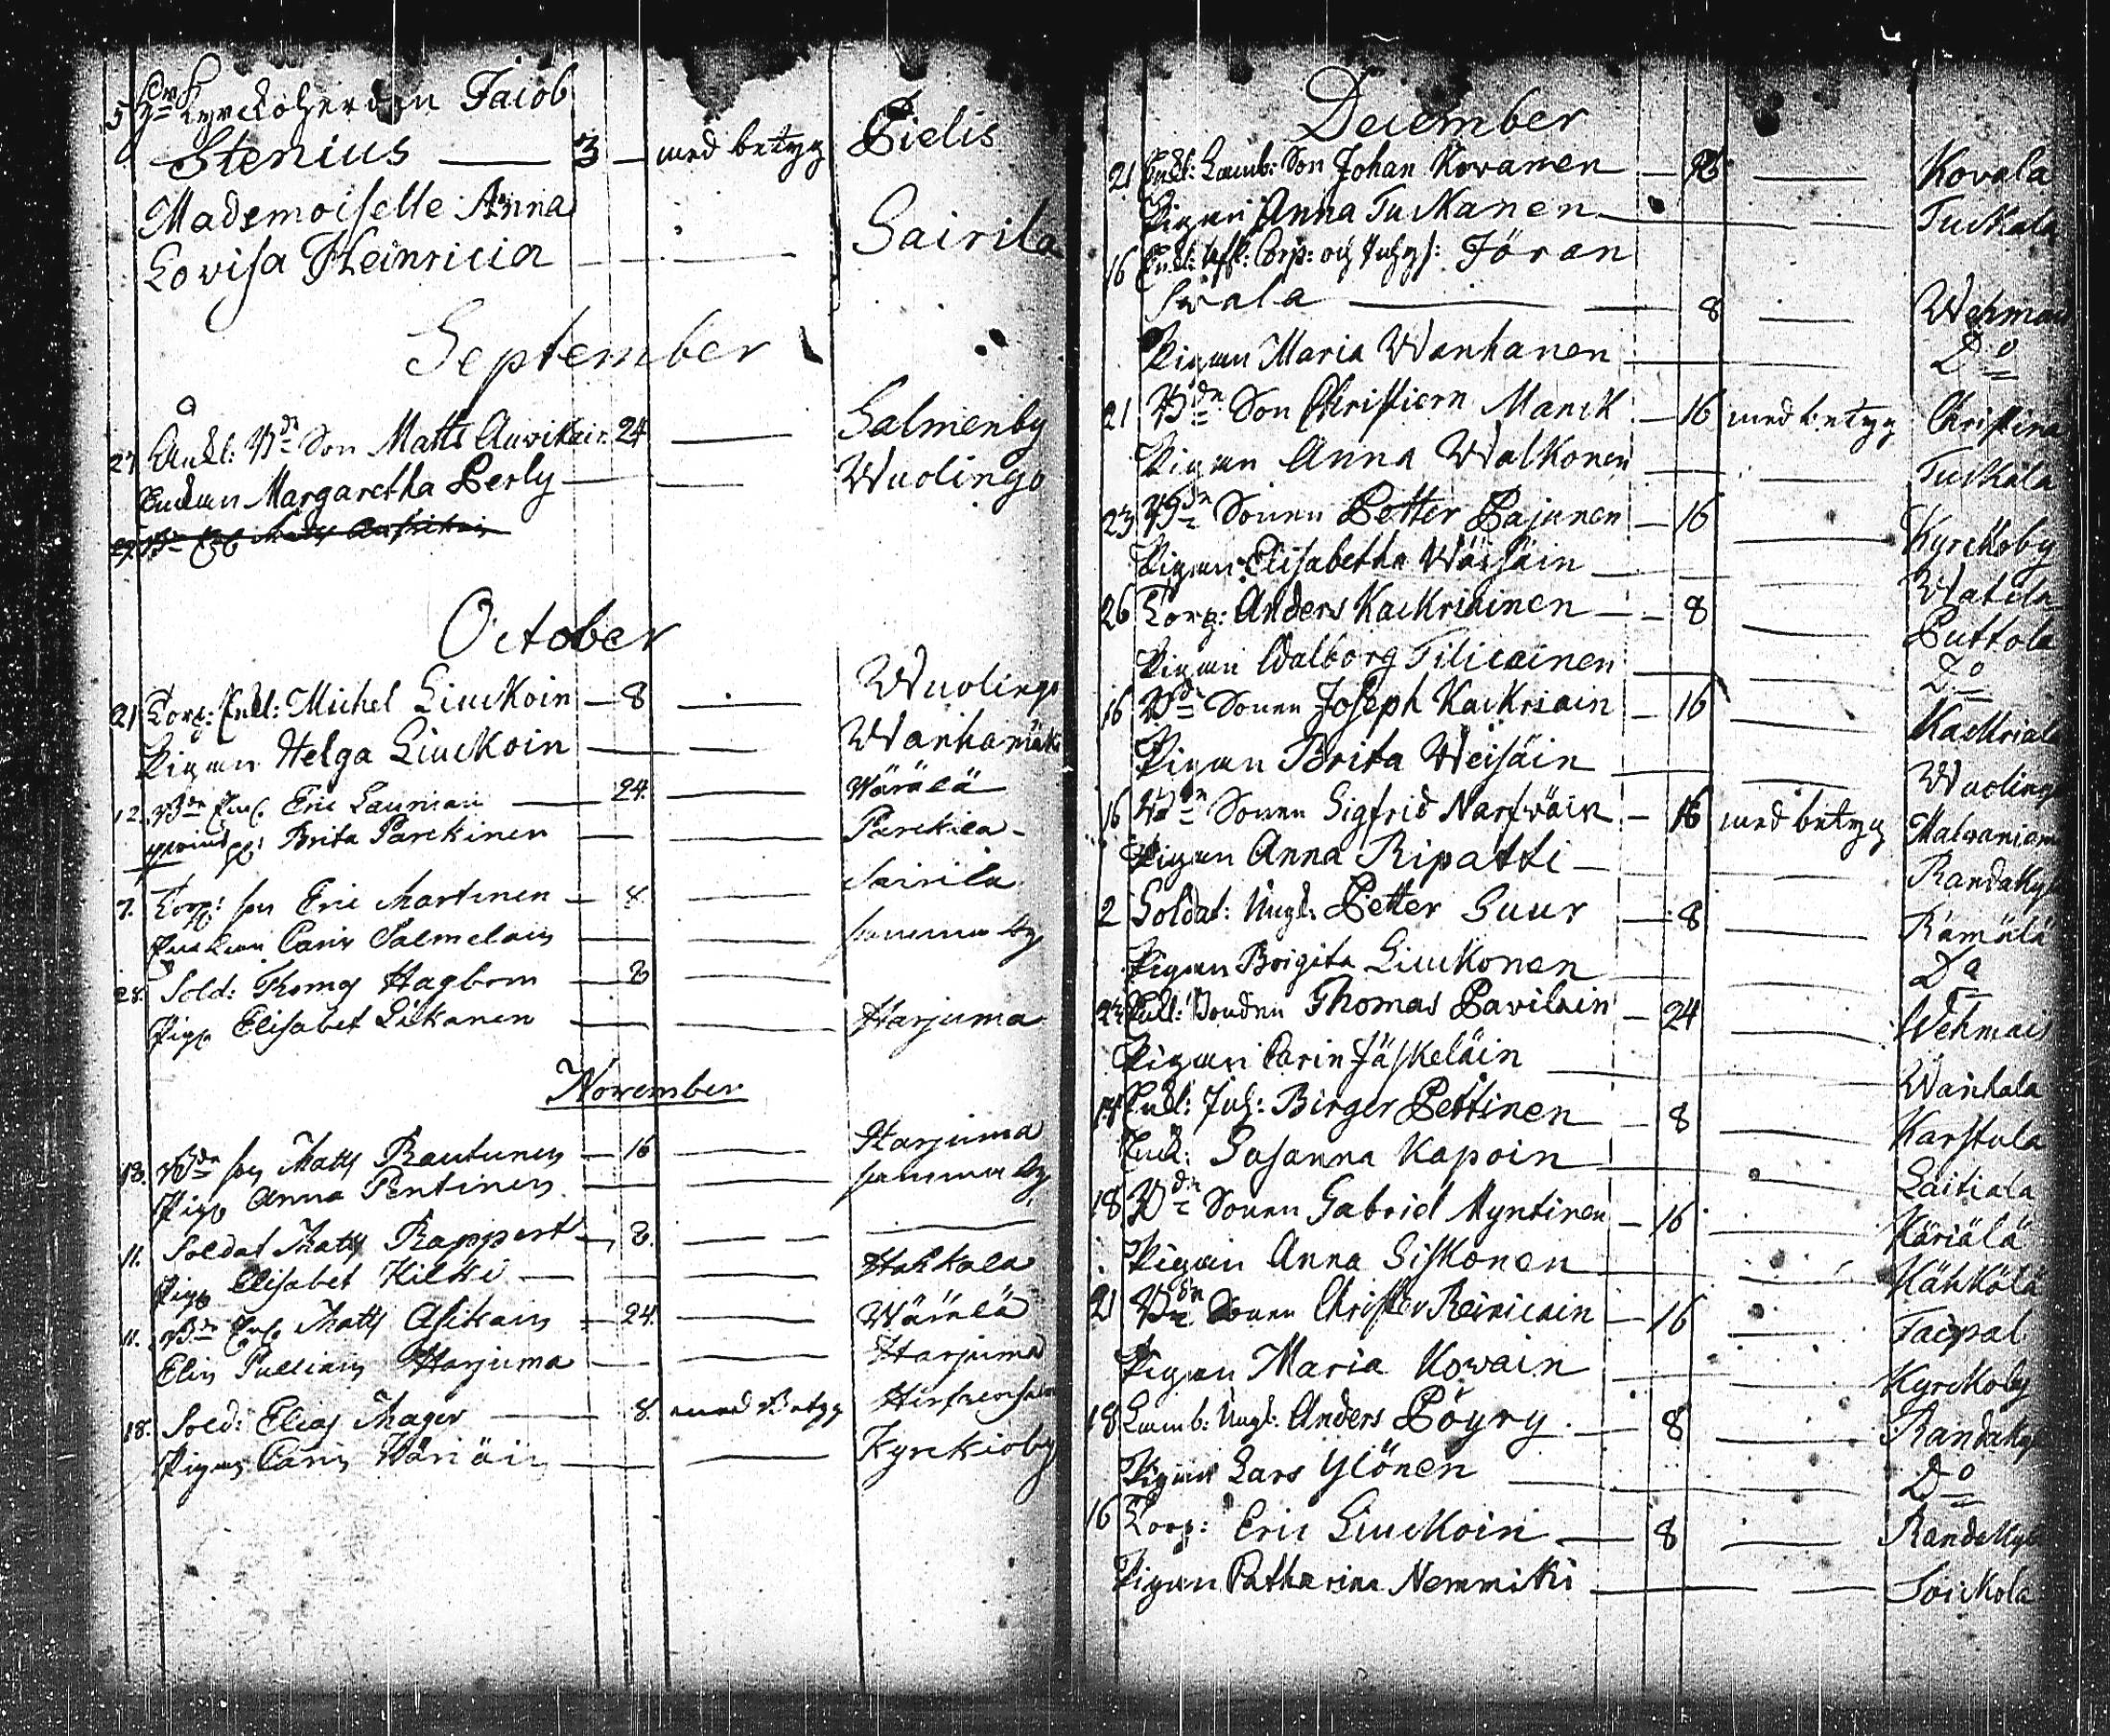 5 Kyrckoherden Jacob
Stenius — 3 — med betyg Pielis
Mademoiselle Anna
Lovisa Heinricia — Sairila
September
Enkl: Bdn Son Matts Auvikain 24 — Salmenby
Enckan Margaretha Perly — Wuolingo
October
21 Corp: Enkl: Michel Liuckoin — 8 — Wuolingo
Pigan Helga Liuckoin — Wanhamäki
12. Bdn Enkl. Eric Launiain — 24. — Wärälä
Brita Parckinen — Parckila
7. Corp: son Eric Martinen — 8. — Sairila
Carin Salmelain — samma by
28. Sold: Thomas Hagbom — 8 —
Pig. Elisabet Likanen — Harjuma
November
18. Bdn son Matts Rautunen — 16 — Harjuma
Pig. Anna Pentinen — samma by
11. Soldat Matts Rappert — 8. —
Pig. Elisabet Kilki — Hahkala
11. Bdn Enkl. Matts Asikain — 24. — Wärälä
Elin Pulliain Harjuma — Harjuma
18. Sold: Elias Mager — 8. med Betyg Hirfvensalm
Pigan Carin Häriäin — Kyrckioby
December
21 Enkl: Lamb: Son Johan Kovanen — 16 — Kovala
Pigan Anna Tuckanen — Tuckala
16 Enkl: Corp: och Jöran
Swala — 8 — Wehmais
Pigan Maria Wanhanen — Do
21 Bdn Son Christiern Manck — 16 med betyg Christina
Pigan Anna Walkonen — Tuckala
23 Bdn Sonen Petter Pajunen — 16 — Kyrckoby
Pigan Elisabetha Wäisäin — Watila
26 Corp: Anders Kackriainen — 8 — Puttola
Pigan Walborg Tilicainen — Do
16 Bdn Sonen Joseph Kackriain — 16 — Kackriala
Pigan Brita Weisäin — Wuolingo
16 Bdn Sonen Sigfrid Narfwäin — 16 med betyg Malvaniemi
Pigan Anna Ripatti — Randakylä
2 Soldat: Ungl: Petter Suur — 8 — Rämälä
Pigan Brigita Liuckonen — Do
23 Enkl: Bonden Thomas Pavilain — 24 — Wehmais
Pigan Carin Jäskeläin — Wanhala
14 Enkl: Birger Pettinen — 8 — Karstula
Enck: Susanna Kapoin — Laitiala
18 Bdn Sonen Gabriel Myntinen — 16 — Käriälä
Pigan Anna Siskonen — Kähkölä
21 Bdn Sonen Christer Reinicain — 16 — Taipal
Pigan Maria Kowain — Kyrckoby
18 Lamb: Ungl: Anders Pöyry — 8 — Randakyl
Pigan Lars Ylönen — Do
16 Corp: Eric Liuckoin — 8 — Randakyl
Pigan Catharina Nemmiki — Soickola